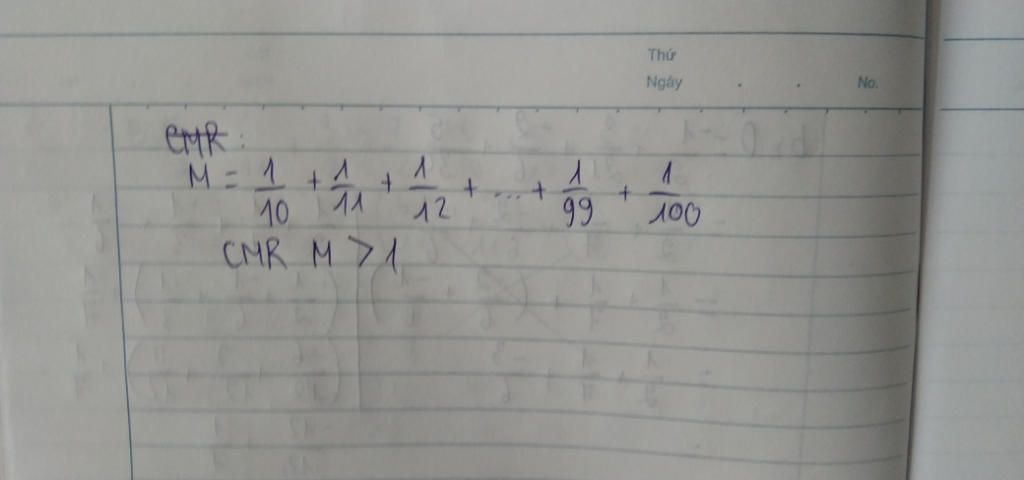 Thứ
Ngày . . No.
CMR:
M = 1/10 + 1/11 + 1/12 + ... + 1/99 + 1/100
CMR M > 1